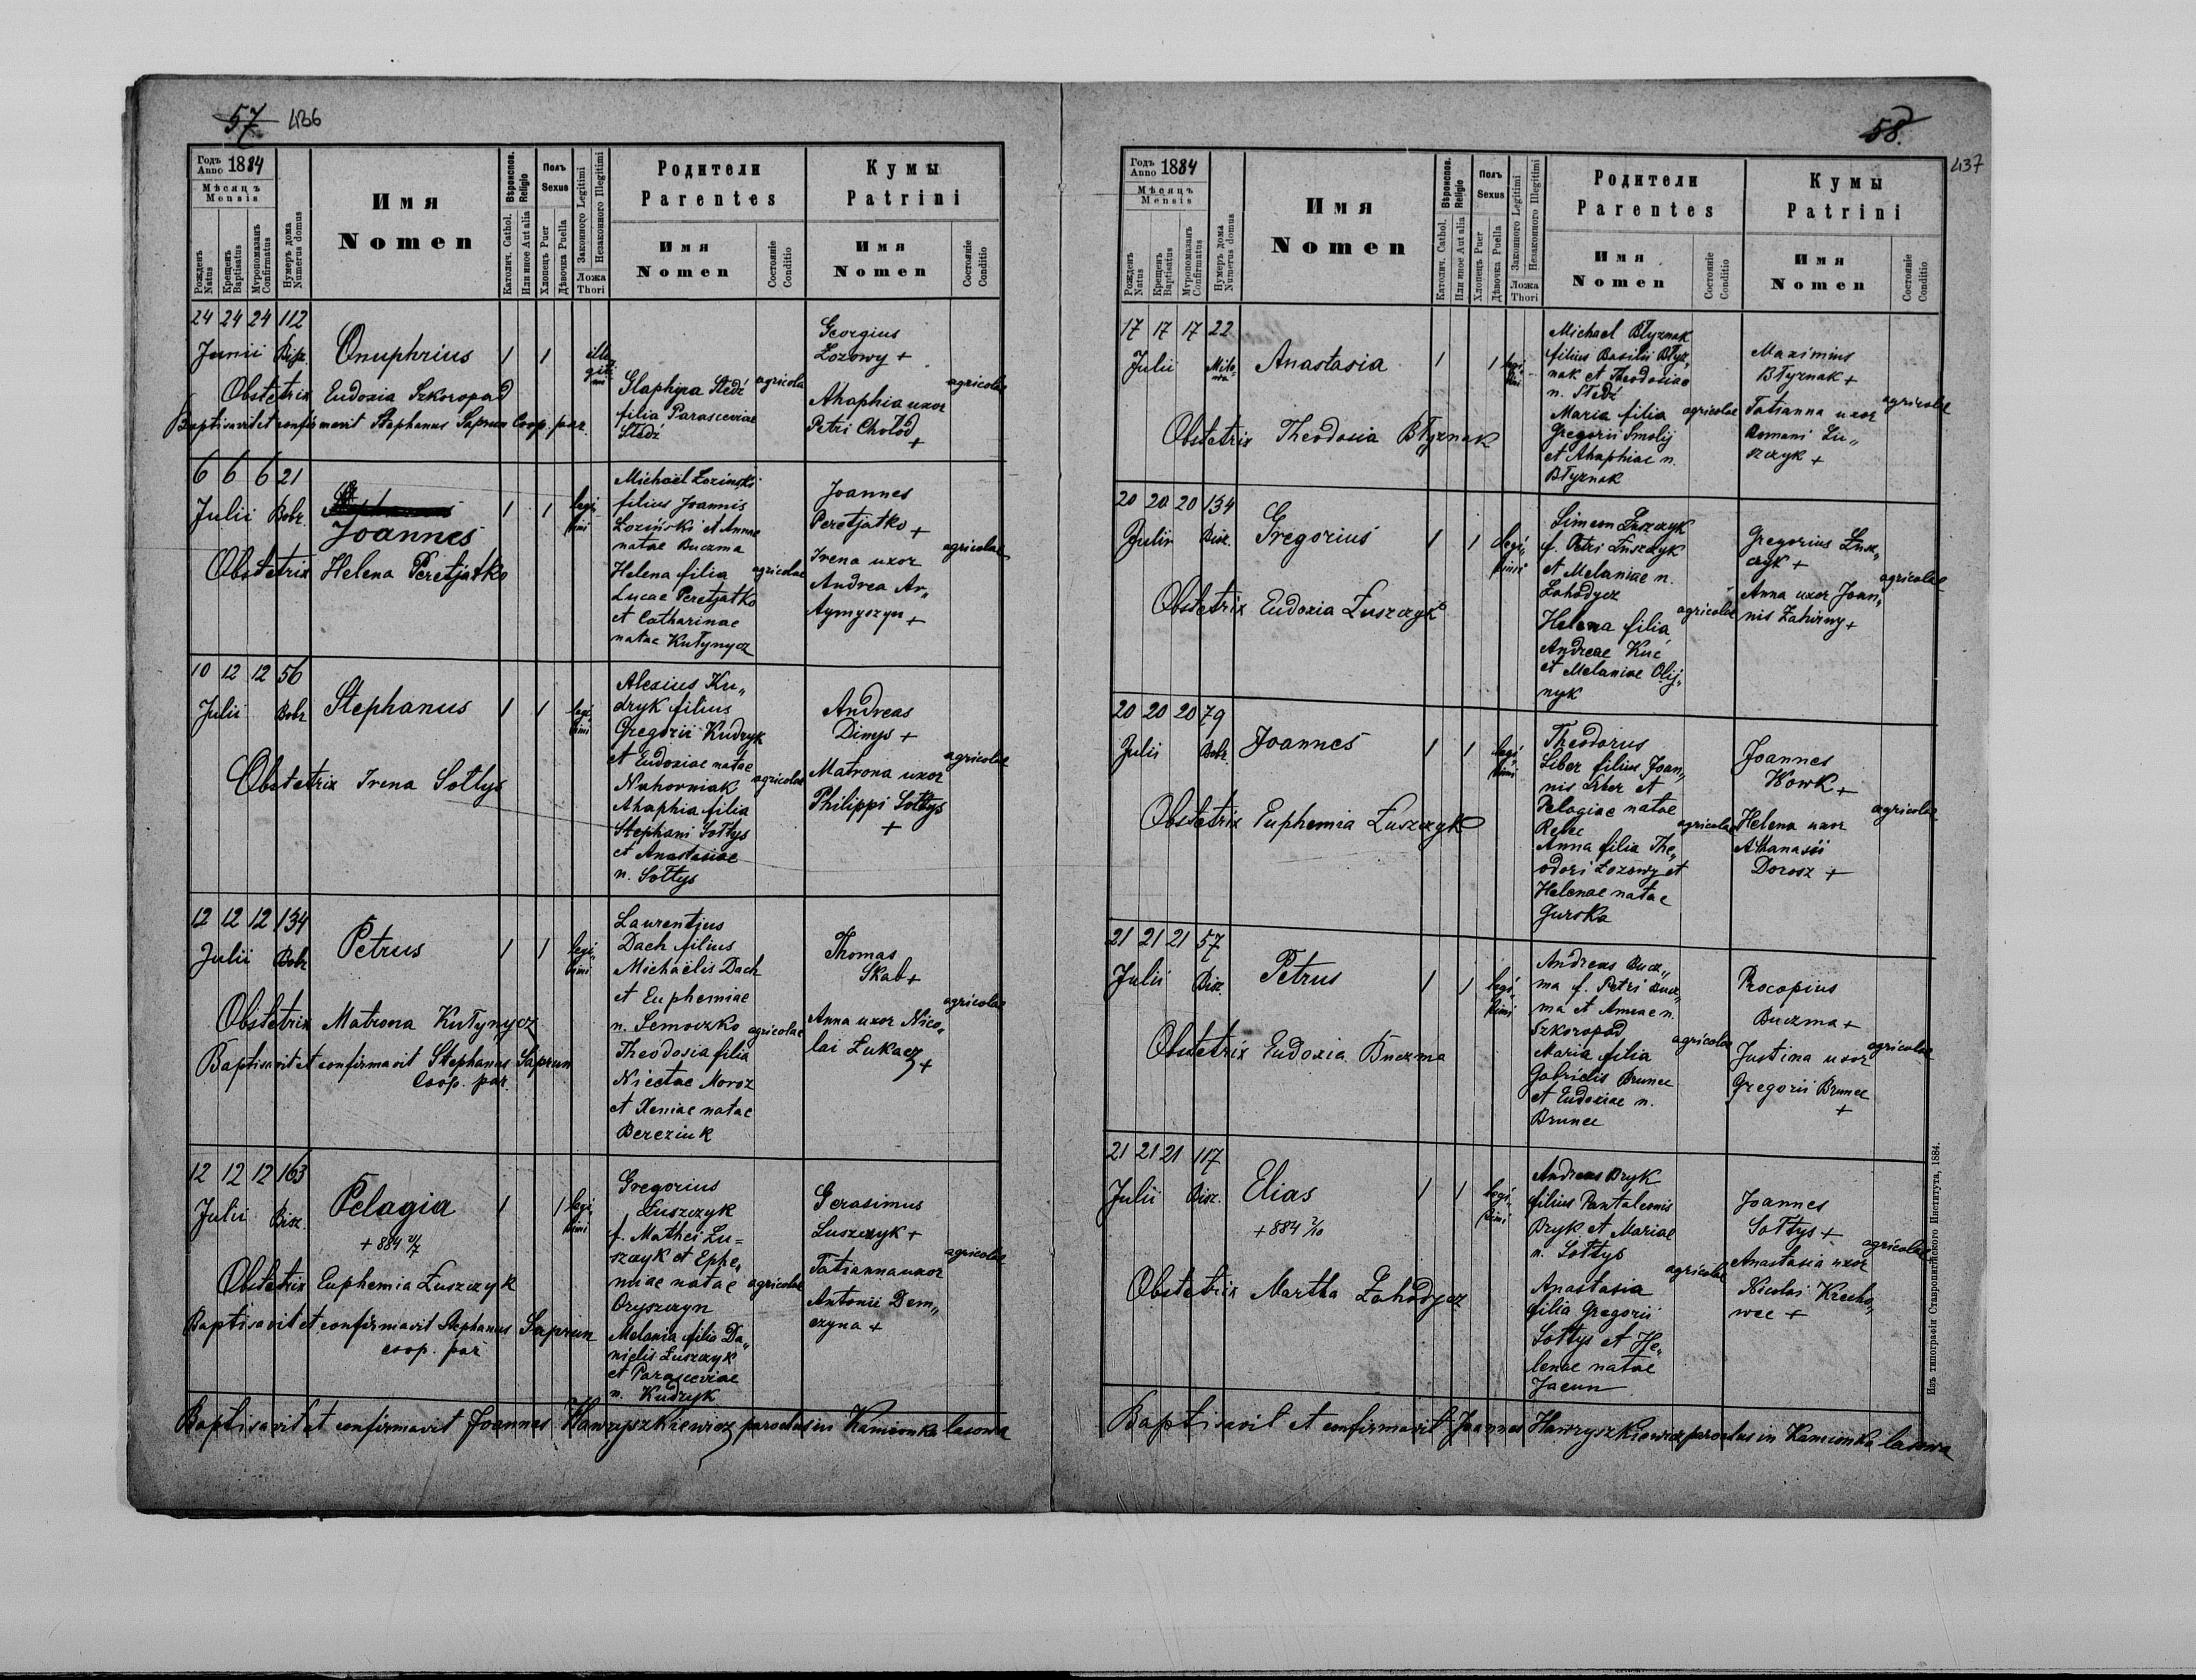 57 436
Годъ Anno 1884
Мѣсяцъ Mensis
Рожденъ Natus
Крещенъ Baptisatus
Мѵропомазанъ Confirmatus
Нумеръ дома Numerus domus
Имя Nomen
Вѣроиспов. Religio
Католич. Cathol.
Или иное Aut alia
Полъ Sexus
Хлопецъ Puer
Дѣвочка Puella
Законного Legitimi
Незаконного Illegitimi
Ложа Thori
Родители Parentes
Имя Nomen
Состояніе Conditio
Кумы Patrini
Имя Nomen
Состояніе Conditio
24 24 24 112
Junii Bisz.
Onuphrius 1 1 illegitimi
Glaphira Sledź
filia Parasceviae
Sledź
agricola
Georgius
Lozowy +
Ahaphia uxor
Petri Cholod
+
agricolae
Obstetrix Eudoxia Szkoropad
Baptisavit et confirmavit Stephanus Saprun Coop. par.
6 6 6 21
Julii Bobr.
Joannes 1 1 legitimi
Michael Lozinski
filius Joannis
Loziński et Annae
natae Buczma
Helena filia
Lucae Peretjatko
et Catharinae
natae Kutynycz
agricolae
Joannes
Peretjatko +
Irena uxor
Andrea Ar„
+
agricolae
Obstetrix Helena Peretjatko
10 12 12 56
Julii Bobr.
Stephanus 1 1 legitimi
Alexius Ku„
dryk filius
Gregorii Kudryk
et Eudoxiae natae
Nahorniak
Ahaphia filia
Stephani Sołtys
et Anastasiae
n. Sołtys
agricolae
Andreas
Dimys +
Matrona uxor
Philippi Sołtys
+
agricolae
Obstetrix Irena Sołtys
12 12 12 134
Julii Bobr
Petrus 1 1 legitimi
Laurentjus
Dach filius
Michaëlis Dach
et Euphemiae
n. Semoczko
Theodosia filia
Nicetae Moroz
et Xeniae natae
Bereziuk
agricolae
Thomas
Skab +
Anna uxor Nico„
lai Łukacz
+
agricolae
Obstetrix Matrona Kutynycz
Baptisavit et confirmavit Stephanus Saprun
Coop. par.
12 12 12 163
Julii Bisz.
Pelagia 1 1 legitimi
+ 884 21/7
Gregorius
Łuszczyk
f. Mathei Łu=
szczyk et Euphe„
miae natae
Oryszczyn
Melania filia Da„
nielis Łuszczyk
et Parasceviae
n. Kudryk
agricolae
Gerasimus
Łuszczyk +
Tatianna uxor
Antonii Dem„
czyna +
agricolae
Obstetrix Euphemia Łuszczyk
Baptisavit et confirmavit Stephanus Saprun
coop. par
Baptisavit et confirmavit Joannes Hawryszkiewicz parochus in Kamionka lasowa
58.
437
Годъ Anno 1884
Мѣсяцъ Mensis
Рожденъ Natus
Крещенъ Baptisatus
Мѵропомазанъ Confirmatus
Нумеръ дома Numerus domus
Имя Nomen
Вѣроиспов. Religio
Католич. Cathol.
Или иное Aut alia
Полъ Sexus
Хлопецъ Puer
Дѣвочка Puella
Законного Legitimi
Незаконного Illegitimi
Ложа Thori
Родители Parentes
Имя Nomen
Состояніе Conditio
Кумы Patrini
Имя Nomen
Состояніе Conditio
17 17 17 22
Julii
Anastasia 1 1 legitimi
Michael Błyznak
filius Basilii Błyz„
nak et Theodosiae
n. Sledź
Maria filia
Gregorii Smolij
et Ahaphiae n.
Błyznak
agricolae
Maximius
Błyznak +
Tatianna uxor
Romani Łu„
szczyk +
agricolae
Obstetrix Theodosia Błyznak
20 20 20 134
Julii Bisz.
Gregorius 1 1 legitimi
Simeon Łuszczyk
f. Petri Łuszczyk
et Melaniae n.
Zahodycz
Helena filia
Andreae Kuć
et Melaniae Olij„
nyk
agricolae
Gregorius Łusz„
czyk +
Anna uxor Joan„
nis Zahirny +
agricolae
Obstetrix Eudoxia Łuszczyk
20 20 20 79
Julii Bobr.
Joannes 1 1 legitimi
Theodorus
Liber filius Joan„
nis Liber et
Pelagiae natae
Anna filia The„
odori Lozowy et
Helenae natae
Gurska
agricolae
Joannes
Wowk +
Helena uxor
Athanasii
Dorosz +
agricolae
Obstetrix Euphemia Łuszczyk
21 21 21 57
Julii Bisz.
Petrus 1 1 legitimi
Andreas Bucz„
ma f. Petri Bucz„
ma et Annae n.
Szkoropad
Maria filia
Gabrielis Brunec
et Eudoxiae n.
Brunec
agricolae
Procopius
Buczma +
Justina uxor
Gregorii Brunec
+
agricolae
Obstetrix Eudoxia Buczma
21 21 21 117
Julii Bisz.
Elias 1 1 legitimi
+ 884 2/10
Andreas Dzyk
filius Pantaleonis
Dzyk et Mariae
n. Sołtys
Anastasia
filia Gregorii
Sołtys et He„
lenae natae
Jacun
agricolae
Joannes
Sołtys +
Anastasia uxor
Nicolai Krecho„
wec +
agricolae
Obstetrix Martha Zahodycz
Baptisavit et confirmavit Joannes Hawryszkiewicz parochus in Kamionka lasowa
Изъ типографіи Ставропигійского Института, 1884.